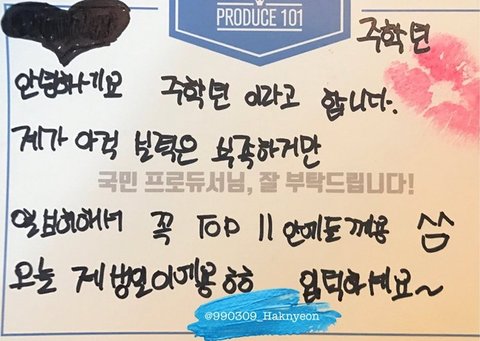 PRODUCE 101
주학년
안녕하세요 주학년 이라고 합니다.
제가 아직 실력은 부족하지만
국민 프로듀서님, 잘 부탁드립니다!
열심히해서 꼭 TOP 11 안에들께용 ^^
오늘 제생일이에용ㅎㅎ 입덕하세요~
@990309_Haknyeon